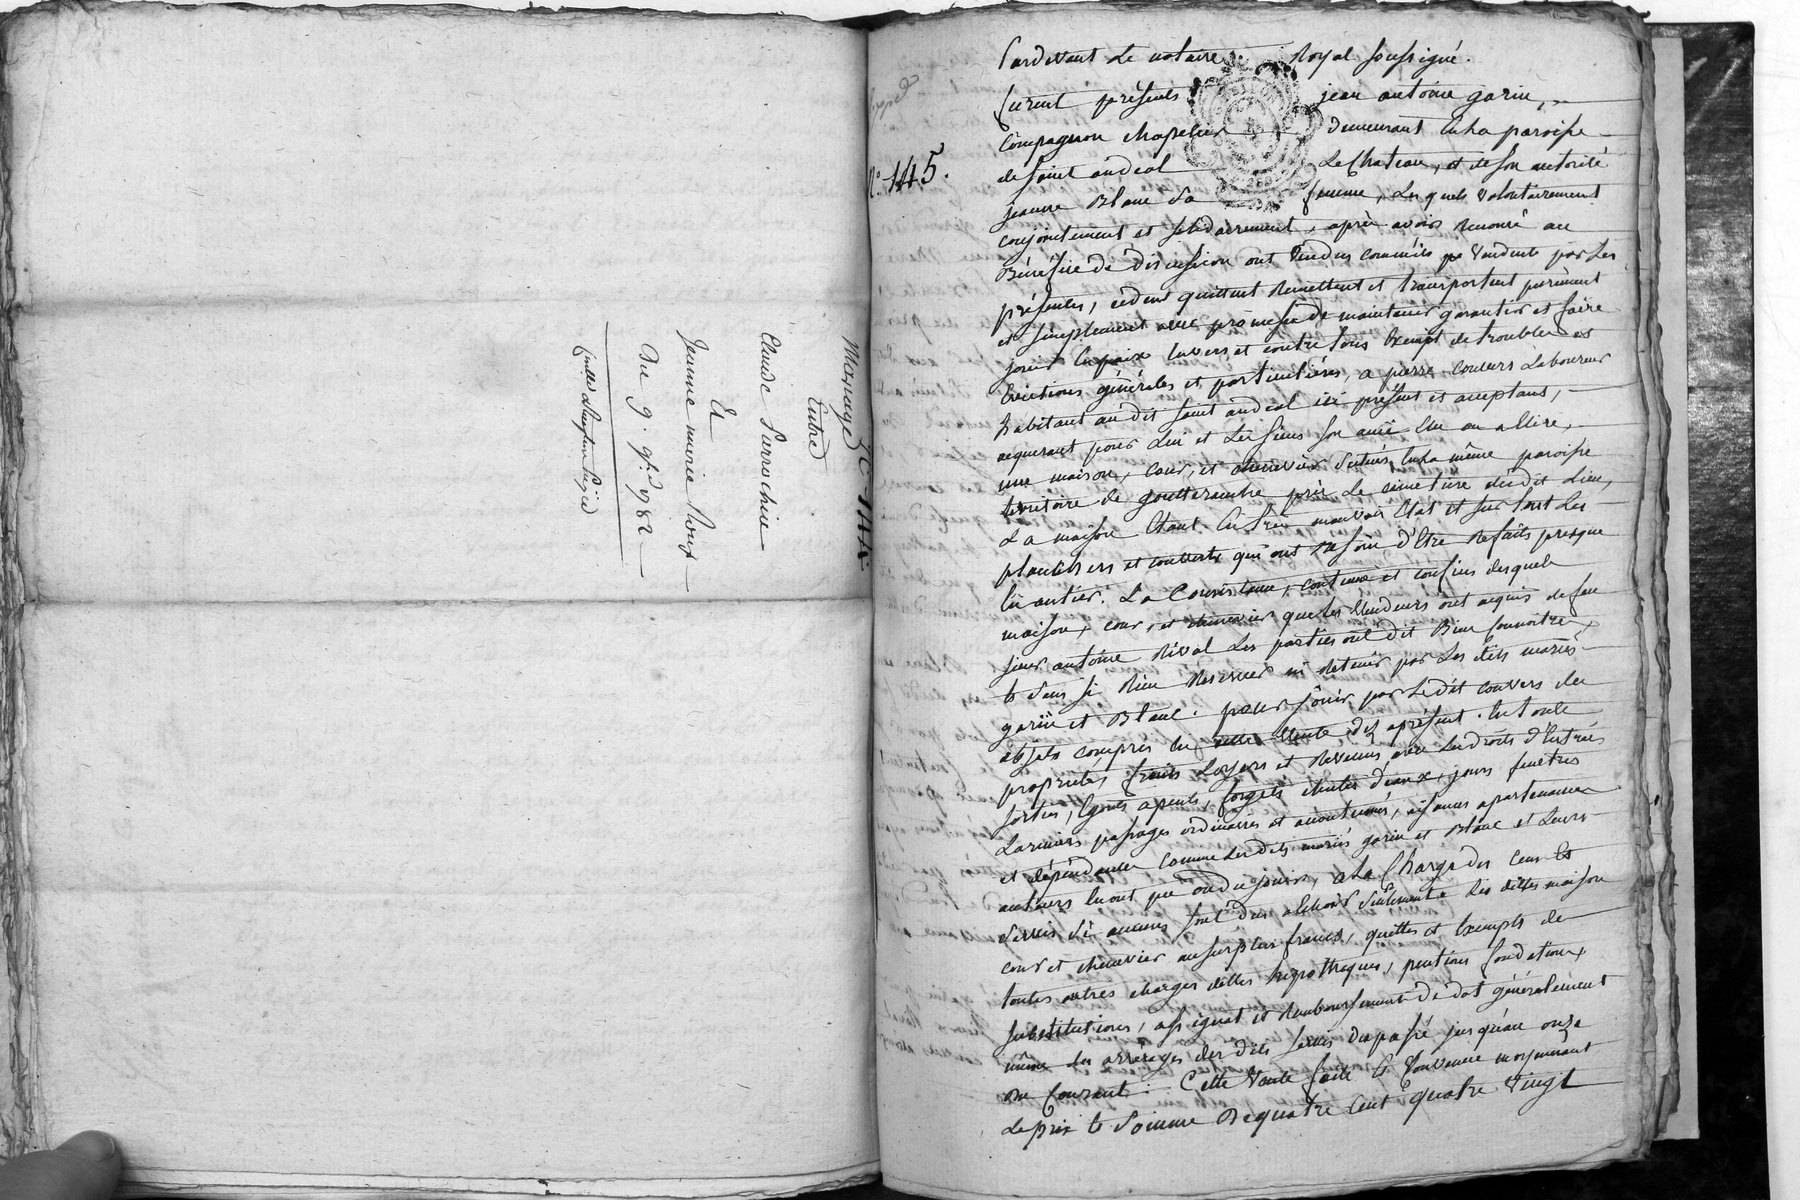 Mariage
Entre
Claude Parrichie
Et
Jeanne marie Roux
Du 9. 9bre 1782
N° 144.
N° 145.
Pardevant Le notaire Royal soussigné.
furent présents jean antoine garin,
Compagnon chapelier demeurant En La paroisse
de saint andeol Le Chateau, et de son autorité
jeanne Blanc Sa femme, Lesquels Volontairement
conjointement et solidairement, après avoir renoncé au
Bénéfice de discussion ont Vendus comme ils Vendent par Les
présentes, cédent quittent Remettent et transportent purement
et simplement avec promesse de maintenir garantir et faire
jouir En paix Envers et contre tous Exempt de troubles et
Evictions générales et particulières, a pierre Couvers Laboureur
habitant au dit saint andeol ici présent et acceptant,
acquerant pour Lui et Les siens son amie Elu ou a Elire,
une maison, cour, et chenevier Situés En La même paroisse
territoire de goutterambe près Le cimetiere dudit Lieu,
La maison Etant En très mauvais Etat et sur tout Les
planchers et couverts qui ont Besoin d'Etre Refaits presque
En entier. La Consistance, contenue et confins desquels
maison, cour, et chenevier que Les Vendeurs ont acquis de feu
sieur antoine Rival Les parties ont dit Bien Connoitre,
Et sans si Rien Reserver ni Retenir par Les dits mariés
garin et Blanc. pour jouir par Ledit couvers des
objets compris En cette Vente dès aprésent. En toute
propriété, fruits Loyers et Revenus avec Les droits d'Entrées
sorties, Egouts apents, forgets chutes d'eaux, jours fenetres
Larmiers passages ordinaires et accoutumés, aisances apartenances
et dépendances comme Les dits mariés garin et Blanc et Leurs
auteurs En ont pu ou du jouir, a La Charge des Cens Et
Servis Si aucuns sont dus a Echoir Seulement Les dittes maison
cour et chenevier au surplus francs, quittes et Exempts de
toutes autres charges dettes hypothèques, pentions fondations,
substitutions, assignat et Remboursement de dot généralement
même des arrérages des dits servis du passé jusqu'au onze
du Courant. Cette Vente faite Et Convenue moyennant
Le prix Et Somme De quatre Cent quatre Vingt